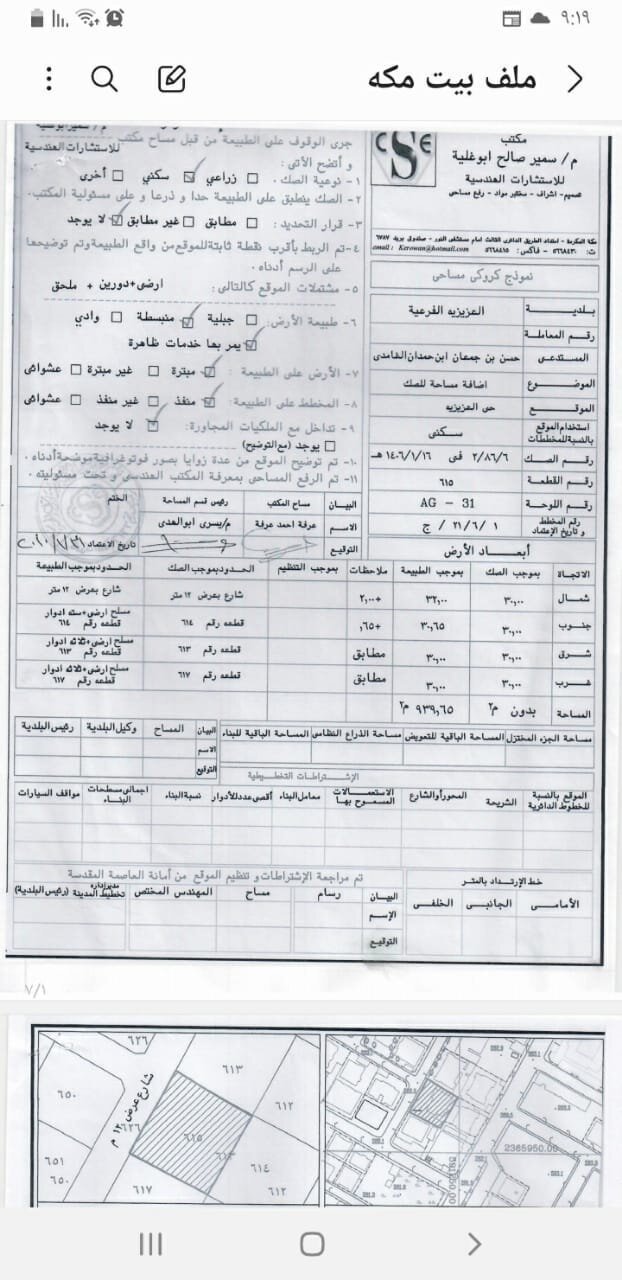 ٩:١٩
ملف بيت مكه
مكتب
م/ سمير صالح ابوغلية
للاستشارات الهندسية
تصميم - اشراف - مختبر مواد - رفع مساحي
CSE
مكة المكرمة - امتداد الطريق الدائرى الثالث امام مستشفى النور - صندوق بريد ٦٧٨٧
ت: ٥٦٦٨٤٣٠ - فاكس: ٥٦٦٨٤١٥ email : Kerowan@hotmail.com
نموذج كروكي مساحى
بلدية العزيزيه الفرعية
رقم المعاملة
المستدعى حسن بن جمعان ابن حمدان الغامدى
الموضوع اضافة مساحة للصك
الموقع حى العزيزيه
استخدام الموقع بالنسبة للمخططات سكنى
رقم الصك ٢/٨٦/٦ فى ١٤٠٦/١/١٦ هـ
رقم القطعة ٦١٥
رقم اللوحة AG - 31
رقم المخطط و تاريخ الإعتماد ١ /٢١/٦ / ج
جرى الوقوف على الطبيعة من قبل مساح مكتب
للاستشارات الهندسية
و أتضح الأتى:
١- نوعية الصك. زراعي سكني أخرى
٢- الصك ينطبق على الطبيعة حدا و ذرعا و على مسئولية المكتب.
٣- قرار التحديد: مطابق غير مطابق لا يوجد
٤- تم الربط بأقرب نقطة ثابتة للموقع من واقع الطبيعة وتم توضيحها
على الرسم أدناه.
٥- مشتملات الموقع كالتالى: ارضى+دورين + ملحق
٦- طبيعة الأرض: جبلية منبسطة وادي
يمر بها خدمات ظاهرة
٧- الأرض على الطبيعة: مبترة غير مبترة عشوائى
٨- المخطط على الطبيعة: منفذ غير منفذ عشوائى
٩- تداخل مع الملكيات المجاورة: لا يوجد
يوجد (مع التوضيح)
١٠- تم توضيح الموقع من عدة زوايا بصور فوتوغرافية موضحة أدناه.
١١- تم الرفع المساحى بمعرفة المكتب الهندسى و تحت مسئوليته.
البيان مساح المكتب رئيس قسم المساحة الختم
الاسم عرفة احمد عرفة م/يسرى ابوالهدى
التوقيع تاريخ الاعتماد
أبعاد الأرض
الاتجاة بموجب الصك بموجب الطبيعة ملاحظات بموجب التنظيم الحدود بموجب الصك الحدود بموجب الطبيعة
شمال ٣٠,٠٠ ٣٢,٠٠ +٢,٠٠ شارع بعرض ١٢ متر شارع بعرض ١٢ متر
جنوب ٣٠,٠٠ ٣٠,٦٥ +٦٥, قطعه رقم ٦١٤ مسلح ارضى+سته ادوار قطعه رقم ٦١٤
شرق ٣٠,٠٠ ٣٠,٠٠ مطابق قطعه رقم ٦١٣ مسلح ارضى+ثلاثه ادوار قطعه رقم ٦١٣
غرب ٣٠,٠٠ ٣٠,٠٠ مطابق قطعه رقم ٦١٧ مسلح ارضى+ثلاثه ادوار قطعه رقم ٦١٧
المساحة بدون م٢ ٩٣٩,٦٥ م٢
مساحة الجزء المختزل المساحة الباقية للتعويض مساحة الذراع النظامى المساحة الباقية للبناء البيان المساح وكيل البلدية رئيس البلدية
الاسم
التوقيع
الإشتراطات التخطيطية
الموقع بالنسبة للخطوط الدائرية الشريحة المحور أو الشارع الاستعمالات المسموح بها معامل البناء أقصى عدد للأدوار نسبة البناء اجمالى مسطحات البناء مواقف السيارات
خط الإرتداد بالمتر
الأمامى الجانبى الخلفى
تم مراجعة الإشتراطات و تنظيم الموقع من أمانة العاصمة المقدسة
البيان رسام مساح المهندس المختص مدير إدارة تخطيط المدينة (رئيس البلدية)
الإسم
التوقيع
٧/١
٦٢٦
٦١٣
٦٥٠
شارع عرض ١٢ م
٦١٢
٦٢٦
٦١٥
٦١٣
٦١٤
٦٥١
٦٥٠
٦١٧
٦١٢
2365950.00